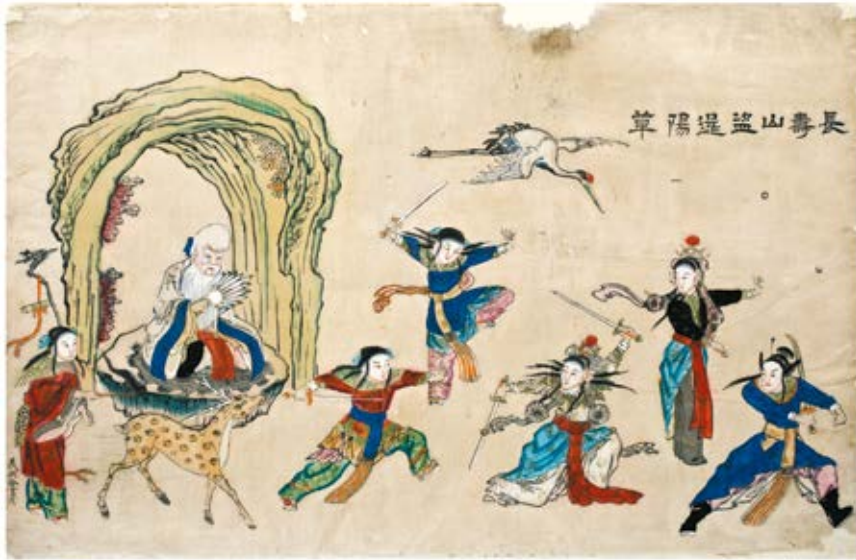 長壽山盜還陽草